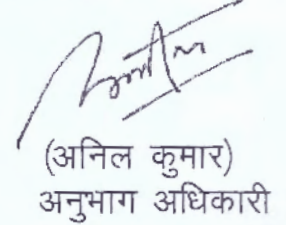 (अनिल कुमार)
अनुभाग अधिकारी